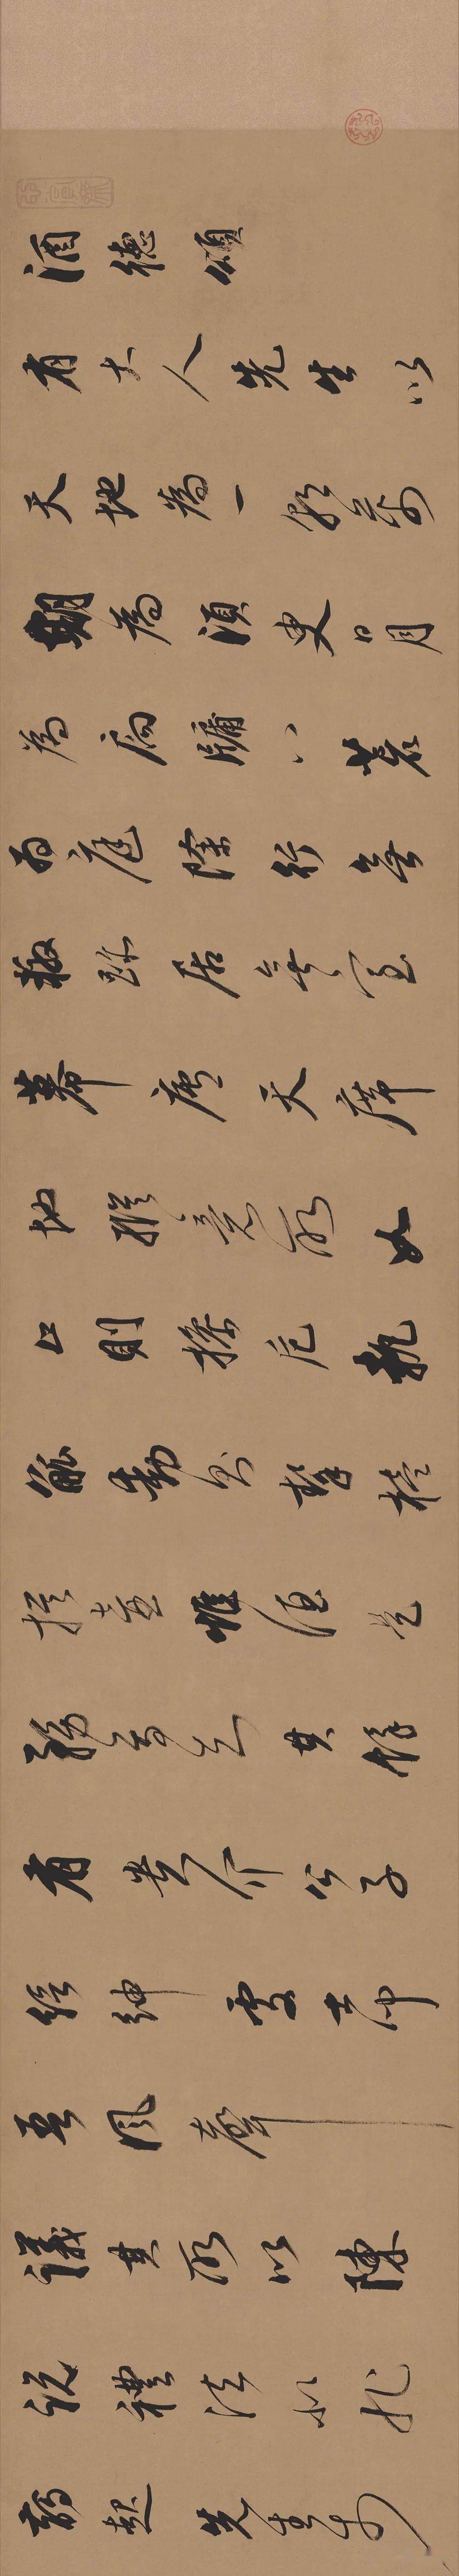 酒德頌
有大人先生以
天地為一朝萬
期為須臾日月
為扃牖八荒
為庭除行無
轍跡居無室
幕廬天席
地縱意所如
止則操卮執
觚動則挈榼
提壺唯酒是
務焉知其餘
有貴介公子
縉紳處士聞
吾風聲
議其所以陳
說禮法是非
起先生於